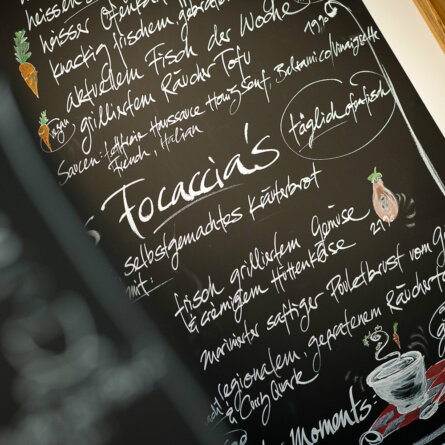 heissem
heisser Ofenkar
knackig frischem gebrate
aktuellem Fisch der Woche
19.20
vegan grilliertem Räucher Tofu
Saucen: fettfreie Haussauce Honig Senf, Balsamico Vinaigrette
French, Italian
täglich ofenfrisch
Focaccia's
selbstgemachtes Kräuterbrot
mit:
frisch grilliertem Gemüse
& cremigem Hüttenkäse
21
marinierter saftiger Pouletbrust vom G
regionalem, gebratenem Räuchertof
& Curry Quark
Moments: